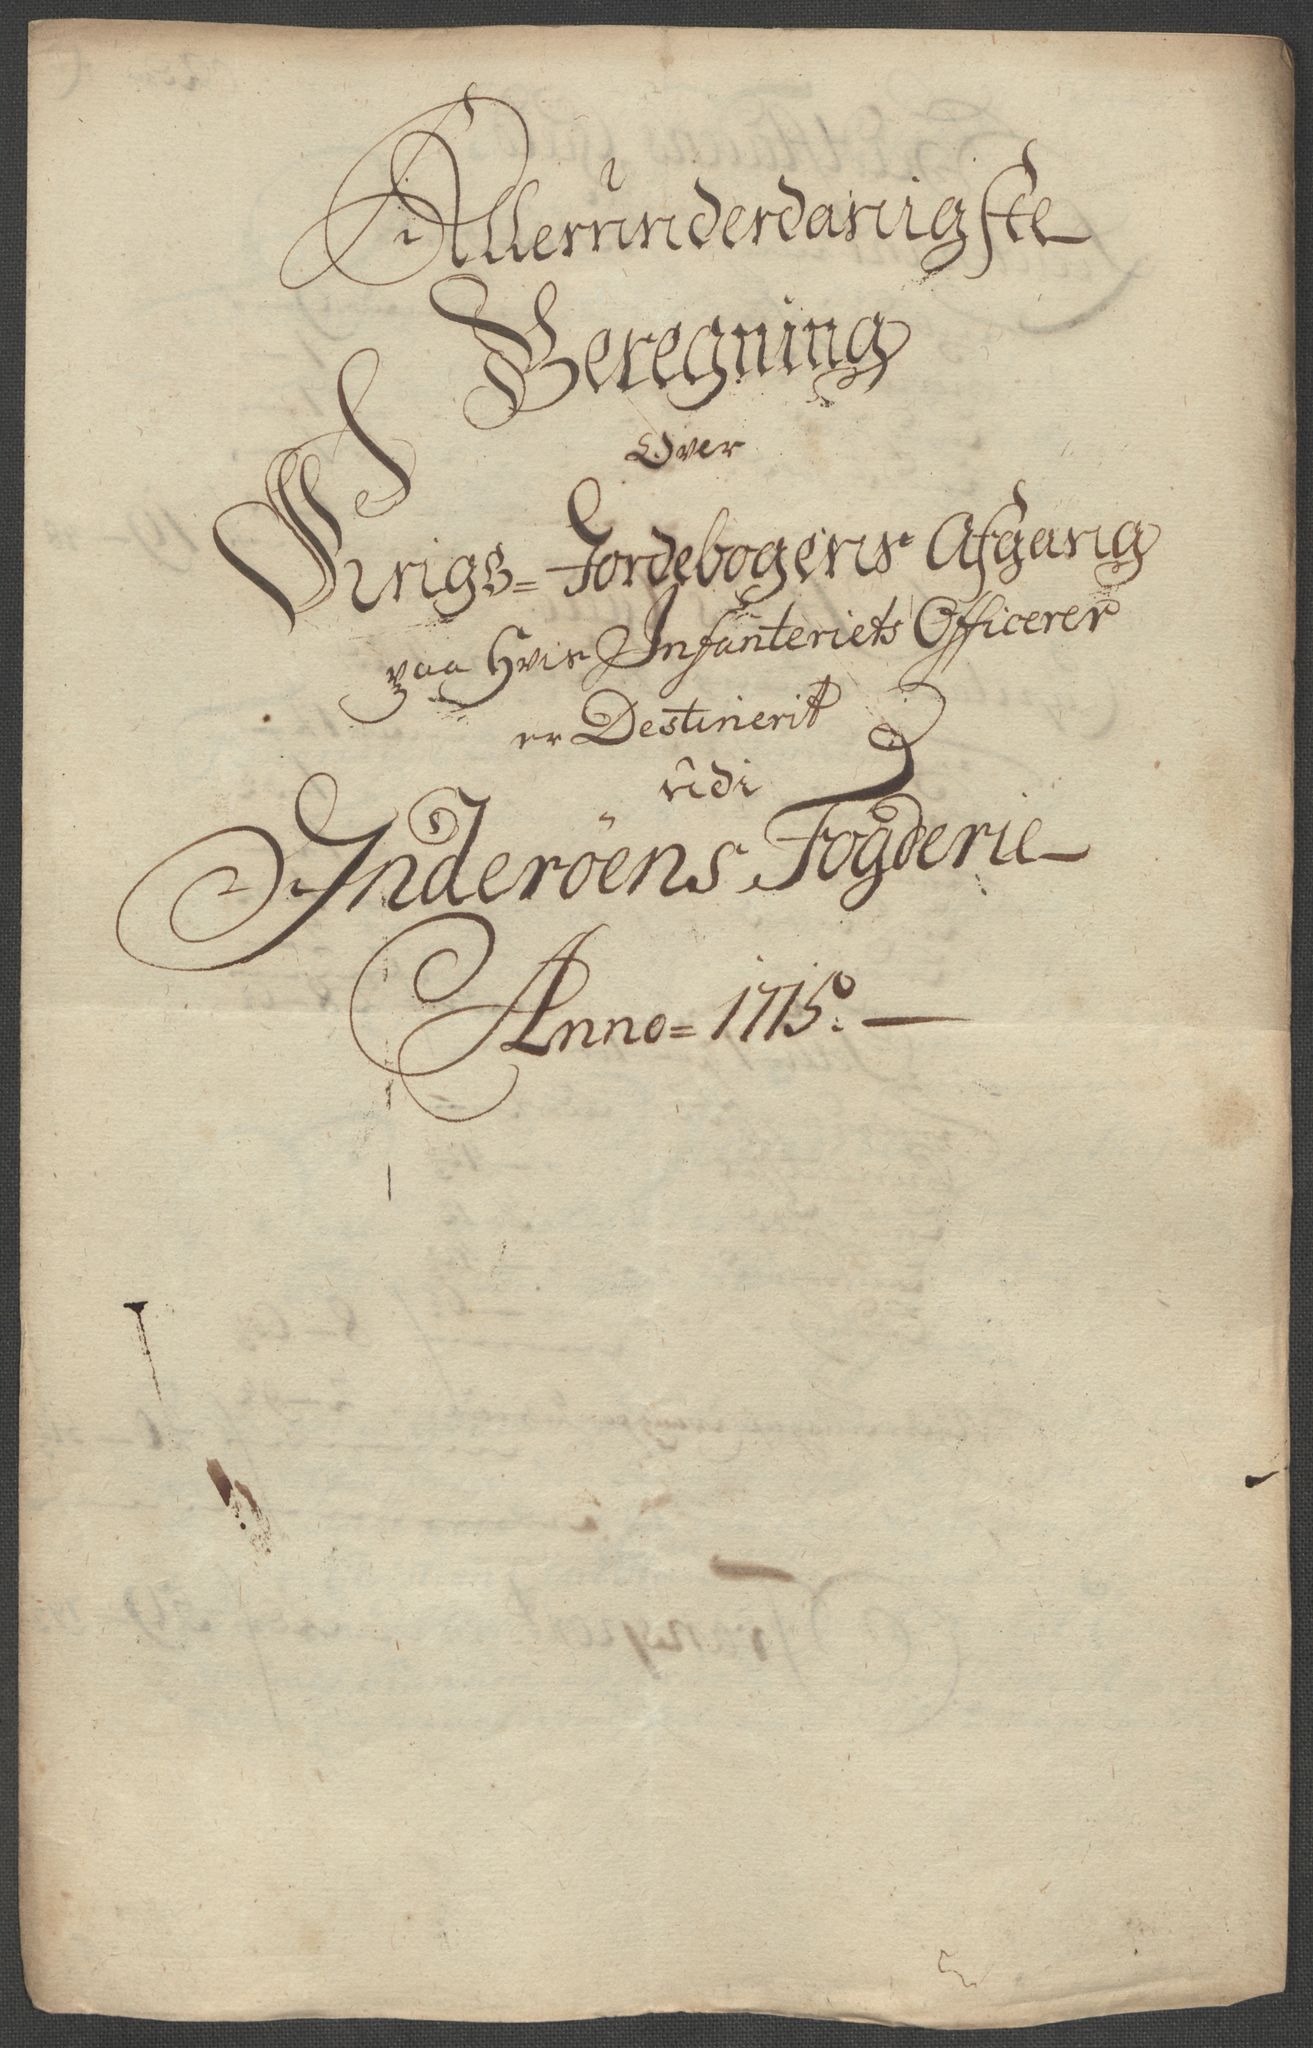 Allerunderdanigste
Beregning
Over
Krigs= Jordebogens Afgang
paa Hvis Infanteriets Officerer
er Destinerit
udi
Inderöens Fogderie
Anno= 1715.